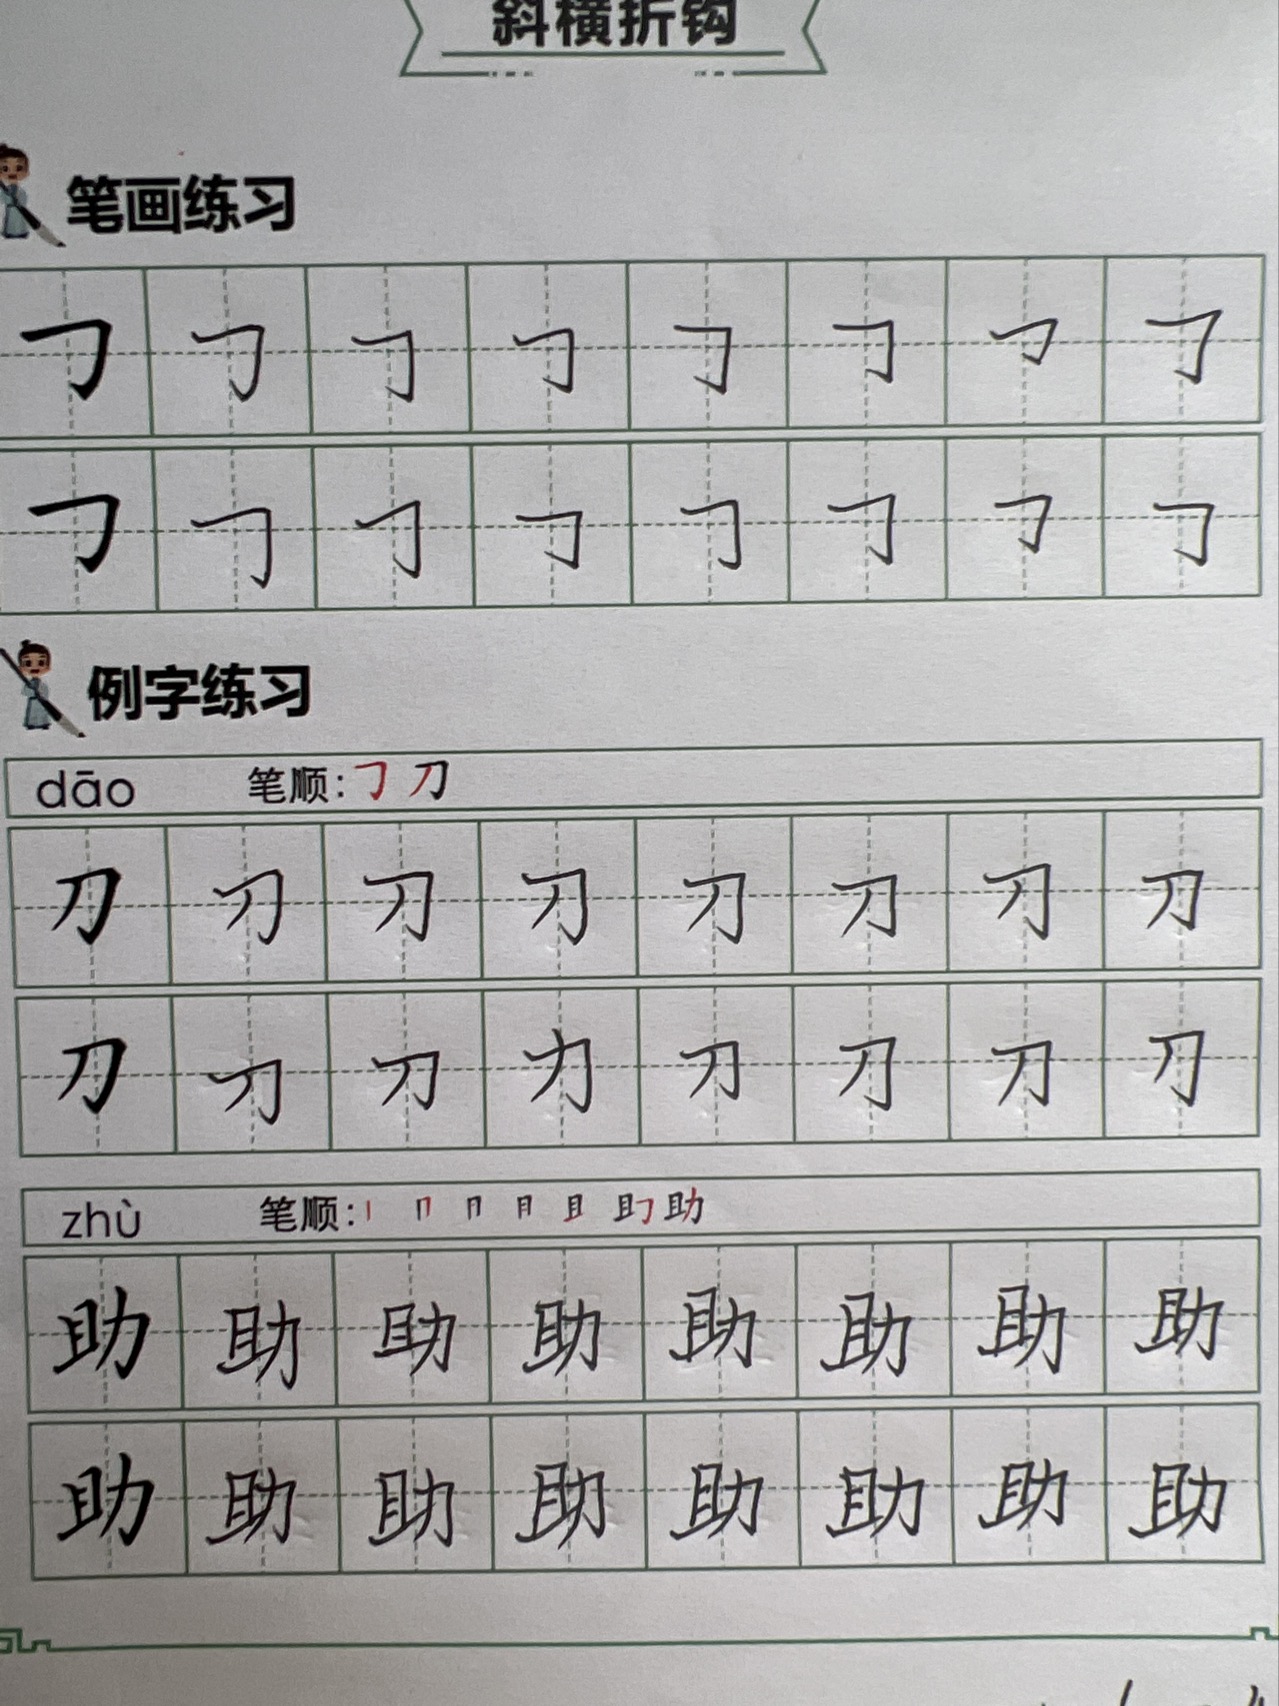 斜横折钩
笔画练习
㇆ ㇆ ㇆ ㇆ ㇆ ㇆ ㇆ ㇆
㇆ ㇆ ㇆ ㇆ ㇆ ㇆ ㇆ ㇆
例字练习
dāo 笔顺:㇆ 刀
刀 刀 刀 刀 刀 刀 刀 刀
刀 刀 刀 力 刀 刀 刀 刀
zhù 笔顺:丨 冂 冂 月 且 且㇆ 助
助 助 助 助 助 助 助 助
助 助 助 助 助 助 助 助